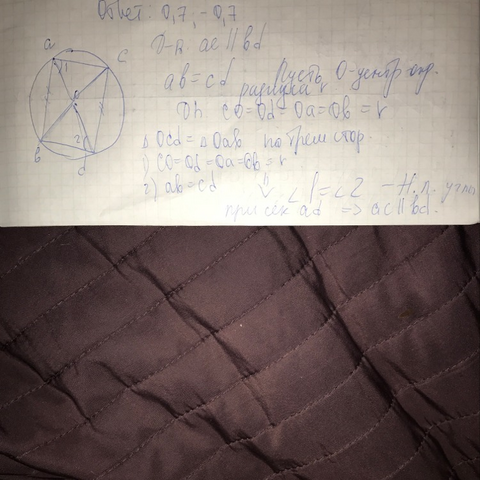 Ответ: 0,7, -0,7
Д-ть ac || bd
ab = cd Пусть O-центр окр.
радиуса r
Dh. CO=Od=Oa=Ob=r
△Ocd=△Oab по трем стор.
1) CO=Od=Oa=Ob=r
2) ab=cd
∠1=∠2 - Н.л. углы
при сек ad => ac||bd.
a
c
b
d
1
2